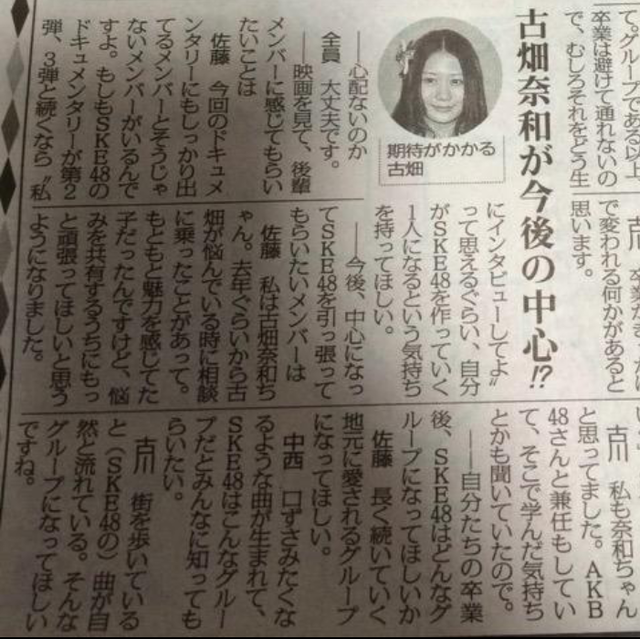 て。グループである以上
卒業は避けて通れないの
で、むしろそれをどう生
で変われる何かがあると
思います。
古畑奈和が今後の中心!?
期待がかかる
古畑
――心配ないのか
全員　大丈夫です。
――映画を見て、後輩
メンバーに感じてもらい
たいことは
佐藤　今回のドキュメ
ンタリーにもしっかり出
てるメンバーとそうじゃ
ないメンバーがいるんで
すよ。もしもSKE48の
ドキュメンタリーが第2
弾、3弾と続くなら〝私
にインタビューしてよ〟
って思えるぐらい、自分
がSKE48を作っていく
1人になるという気持ち
を持ってほしい。
――今後、中心になっ
てSKE48を引っ張って
もらいたいメンバーは
佐藤　私は古畑奈和ち
ゃん。去年ぐらいから古
畑が悩んでいる時に相談
に乗ったことがあって。
もともと魅力を感じてた
子だったんですけど、悩
みを共有するうちにもっ
と頑張ってほしいと思う
ようになりました。
古川　私も奈和ちゃん
と思ってました。AKB
48さんと兼任もしてい
て、そこで学んだ気持ち
とかも聞いていたので。
――自分たちの卒業
後、SKE48はどんなグ
ループになってほしいか
佐藤　長く続いていく
地元に愛されるグループ
になってほしい。
中西　口ずさみたくな
るような曲が生まれて、
SKE48はこんなグルー
プだとみんなに知っても
らいたい。
古川　街を歩いている
と(SKE48の)曲が自
然と流れている。そんな
グループになってほしい
ですね。